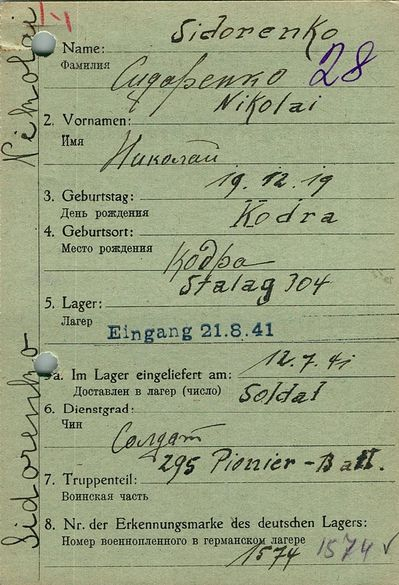 Sidorenko
1. Name:
Фамилия
Сидоренко
28
Nikolai
2. Vornamen:
Имя
Николай
19.12.19
3. Geburtstag:
День рождения
Kodra
4. Geburtsort:
Место рождения
Кодра
Stalag 304
5. Lager:
Лагер
Eingang 21.8.41
12.7.41
5a. Im Lager eingeliefert am:
Доставлен в лагер (число)
Soldat
6. Dienstgrad:
Чин
Солдат
295 Pionier-Batl.
7. Truppenteil:
Воинская часть
8. Nr. der Erkennungsmarke des deutschen Lagers:
Номер военнопленного в германском лагере
1574 1574 √
Sidorenko Nikolai